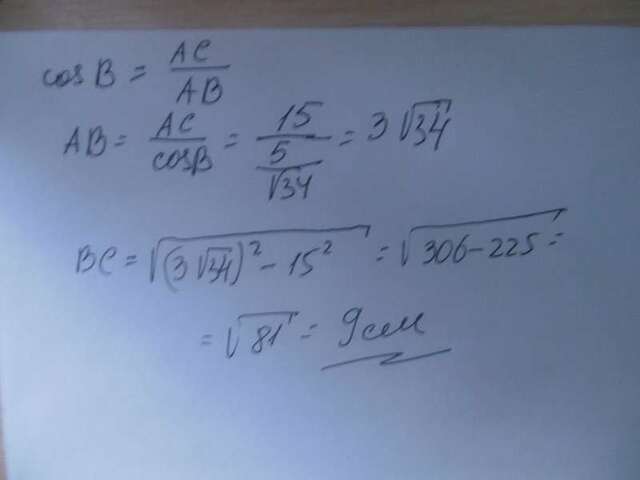 cos B = AC/AB
AB = AC/cosB = 15/(5/√34) = 3√34
BC = √((3√34)² - 15²) = √(306-225) =
= √81 = 9см